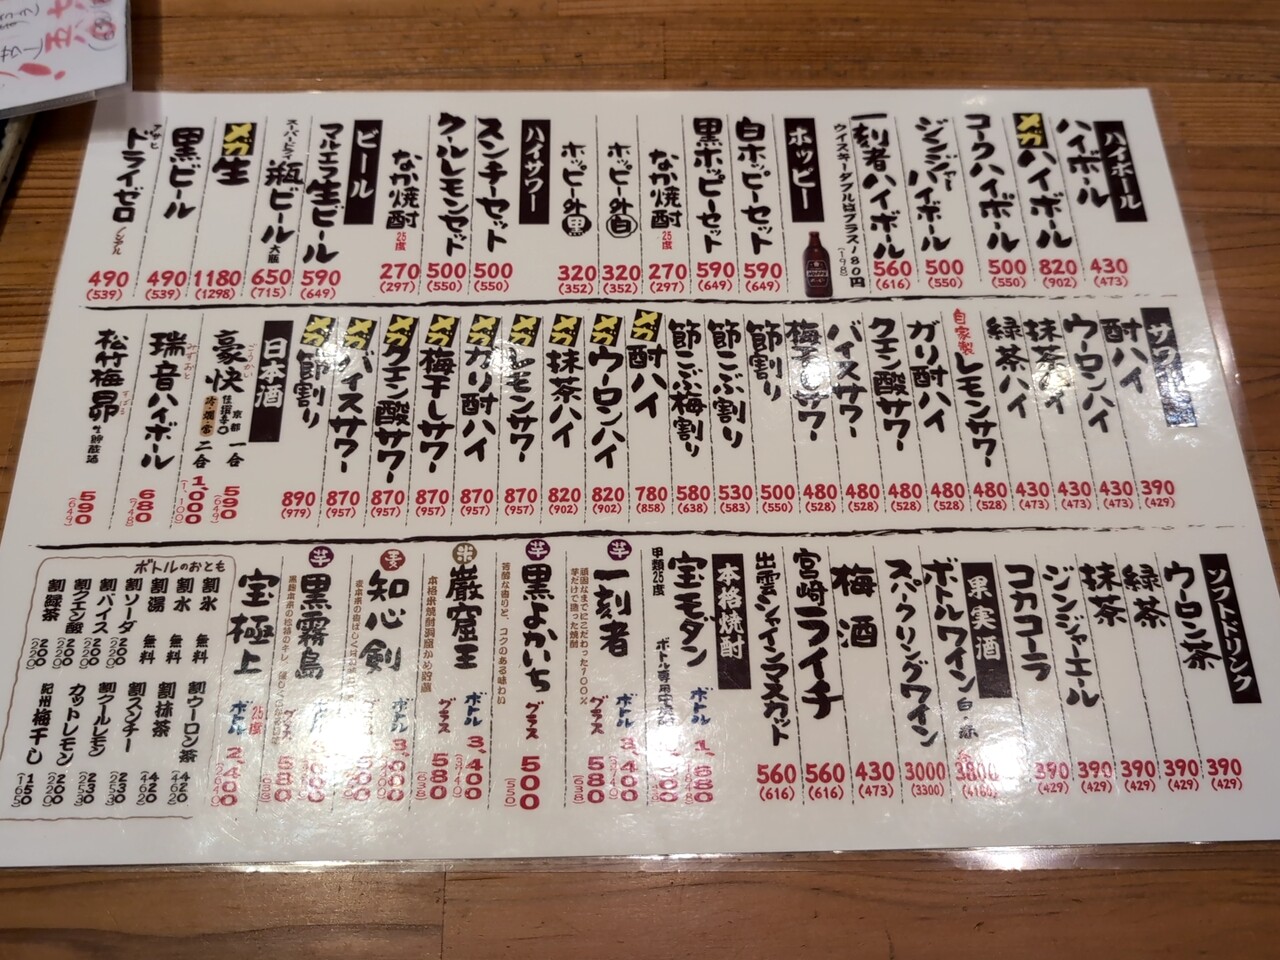 ハイボール
ハイボール 430 (473)
メガハイボール 820 (902)
コークハイボール 500 (550)
ジンジャーハイボール 500 (550)
一刻者ハイボール 560 (616)
ウイスキーダブルはプラス180円 (198)
ホッピー
白ホッピーセット 590 (649)
黒ホッピーセット 590 (649)
なか焼酎 25度 270 (297)
ホッピー外白 320 (352)
ホッピー外黒 320 (352)
ハイサワー
スンチーセット 500 (550)
クールレモンセット 500 (550)
なか焼酎 25度 270 (297)
ビール
マルエフ生ビール 590 (649)
スーパードライ 瓶ビール 大瓶 650 (715)
メガ生 1180 (1298)
黒ビール 490 (539)
アサヒ ドライゼロ ノンアル 490 (539)
酎ハイ 390 (429)
ウーロンハイ 430 (473)
抹茶ハイ 430 (473)
緑茶ハイ 430 (473)
自家製 レモンサワー 480 (528)
ガリ酎ハイ 480 (528)
クエン酸サワー 480 (528)
バイスサワー 480 (528)
梅干しサワー 480 (528)
節割り 500 (550)
節こぶ割り 530 (583)
節こぶ梅割り 580 (638)
メガ酎ハイ 780 (858)
メガウーロンハイ 820 (902)
メガ抹茶ハイ 820 (902)
メガレモンサワー 870 (957)
メガガリ酎ハイ 870 (957)
メガ梅干しサワー 870 (957)
メガクエン酸サワー 870 (957)
メガバイスサワー 870 (957)
メガ節割り 890 (979)
日本酒
豪快 ごうかい 京都 一合 590 (649)
二合 1,000 (1,100)
瑞音ハイボール みずおと 680 (748)
松竹梅昴 すばる 生貯蔵酒 590 (649)
ソフトドリンク
ウーロン茶 390 (429)
緑茶 390 (429)
抹茶 390 (429)
ジンジャーエール 390 (429)
コカコーラ 390 (429)
果実酒
ボトルワイン 白・赤 3800 (4180)
スパークリングワイン 3000 (3300)
梅酒 430 (473)
宮崎ライチ 560 (616)
出雲シャインマスカット 560 (616)
本格焼酎
宝モダン 甲類25度 ボトル
芋 一刻者
頑固なまでにこだわった100%
芋だけで造った焼酎
ボトル 3,400
グラス 580 (638)
芋 黒よかいち
芳醇な香りと、コクのある味わい
グラス 500 (550)
米 巌窟王
本格米焼酎洞窟かめ貯蔵
ボトル 3,400 (3740)
グラス 580 (638)
麦 知心剣
ボトル 3,000
芋 黒霧島
グラス 580
宝極上 25度
ボトル 2,400 (2640)
ボトルのおとも
割氷 無料
割水 無料
割湯 無料
割ソーダ 200 (220)
割バイス 200 (220)
割クエン酸 200 (220)
割緑茶 200 (220)
割ウーロン茶 420 (462)
割抹茶 420 (462)
割スンチー 230 (253)
割クールレモン 230 (253)
カットレモン 200 (220)
紀州梅干し 150 (165)